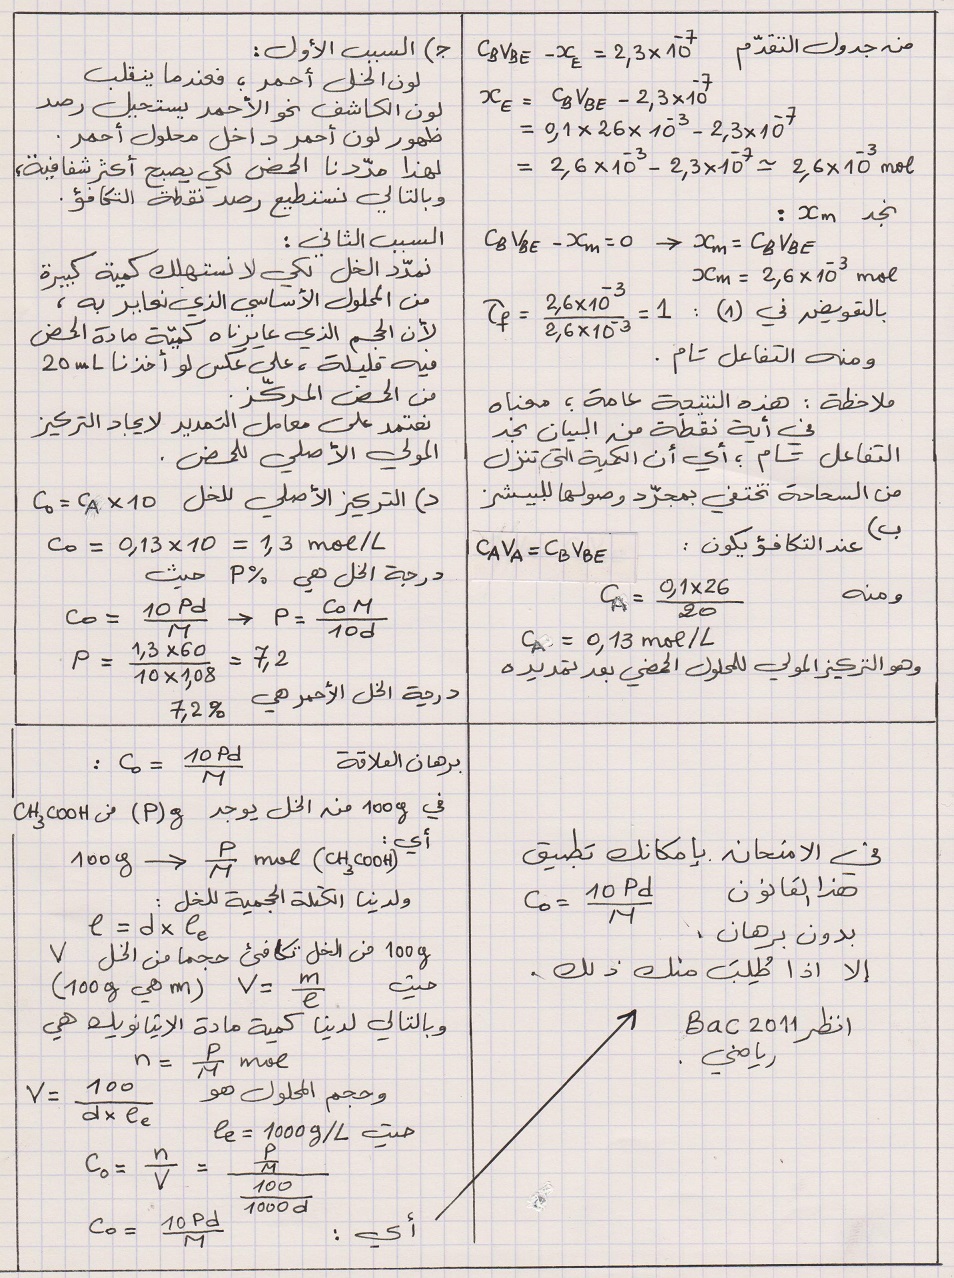 من جدول التقدّم C_B V_BE - x_E = 2,3×10^-7
x_E = C_B V_BE - 2,3×10^-7
= 0,1×26×10^-3 - 2,3×10^-7
= 2,6×10^-3 - 2,3×10^-7 ≃ 2,6×10^-3 mol
نجد x_m :
C_B V_BE - x_m = 0 → x_m = C_B V_BE
x_m = 2,6×10^-3 mol
بالتعويض في (1) : τ_f = 2,6×10^-3 / 2,6×10^-3 = 1
ومنه التفاعل تام .
ملاحظة : هذه النتيجة عامة ؛ معناه
في أية نقطة من البيان نجد
التفاعل تام ؛ أي أن الكمية التي تنزل
من السحاحة تختفي بمجرّد وصولها للبيشر .
ب) عند التكافؤ يكون : C_A V_A = C_B V_BE
ومنه C_A = 0,1×26 / 20
C_A = 0,13 mol/L
وهو التركيز المولي للمحلول الحمضي بعد تمديده
ج) السبب الأول :
لون الخل أحمر ، فعندما ينقلب
لون الكاشف نحو الأحمر يستحيل رصد
ظهور لون أحمر داخل محلول أحمر .
لهذا مدّدنا الحمض لكي يصبح أكثر شفافية ،
وبالتالي نستطيع رصد نقطة التكافؤ .
السبب الثاني :
نمدّد الخل لكي لا نستهلك كمية كبيرة
من المحلول الأساسي الذي نعاير به ،
لأن الحجم الذي عايرناه كميّة مادة الحمض
فيه قليلة ، على عكس لو أخذنا 20 mL
من الحمض المركّز .
نعتمد على معامل التمديد لايجاد التركيز
المولي الأصلي للحمض .
د) التركيز الأصلي للخل C_0 = C_A × 10
C_0 = 0,13×10 = 1,3 mol/L
درجة الخل هي P% حيث
C_0 = 10Pd / M → P = C_0 M / 10d
P = 1,3×60 / 10×1,08 = 7,2
درجة الخل الأحمر هي
7,2%
برهان العلاقة C_0 = 10Pd / M :
في 100g من الخل يوجد (P)g من CH3COOH
أي :
100g → P/M mol (CH3COOH)
ولدينا الكتلة الحجمية للخل :
ρ = d × ρ_e
100g من الخل تكافئ حجما من الخل V
حيث V = m/ρ (m هي 100g)
وبالتالي لدينا كمية مادة الايثانويك هي
n = P/M mol
وحجم المحلول هو V = 100 / d×ρ_e
حيث ρ_e = 1000 g/L
C_0 = n/V = (P/M) / (100/1000d)
أي : C_0 = 10Pd / M
في الامتحان بإمكانك تطبيق
هذا القانون C_0 = 10Pd / M
بدون برهان ،
إلا اذا طُلِبَ منك ذلك .
انظر Bac 2011
رياضي .